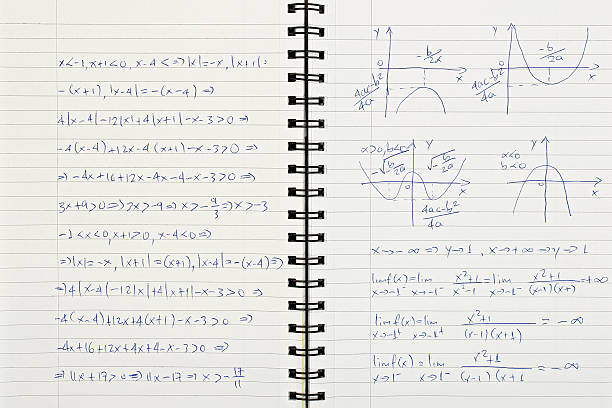 x<-1, x+1<0, x-4< ⇒ |x|=-x, |x+1|=
-(x+1), |x-4|=-(x-4) ⇒
4|x-4|-12|x|+4|x+1|-x-3>0 ⇒
-4(x-4)+12x-4(x+1)-x-3>0 ⇒
⇒ -4x+16+12x-4x-4-x-3>0 ⇒
3x+9>0 ⇒ 3x>-9 ⇒ x>-9/3 ⇒ x>-3
-1<x<0, x+1>0, x-4<0 ⇒
⇒ |x|=-x, |x+1|=(x+1), |x-4|=-(x-4) ⇒
⇒ 4|x-4|-12|x|+4|x+1|-x-3>0 ⇒
-4(x-4)+12x+4(x+1)-x-3>0 ⇒
-4x+16+12x+4x+4-x-3>0 ⇒
⇒ 11x+17>0 ⇒ 11x-17 ⇒ x>-17/11
y 0 -b/2a x
4ac-b²/4a
y -b/2a 0 x
4ac-b²/4a
α>0, b<0 y
-√-b/2a √-b/2a
0 x
4ac-b²/4a
α<0 y
b<0
0 x
x→-∞ ⇒ y→1, x→+∞ ⇒ y→1
limf(x)=lim x²+1/x²-1 =lim x²+1/(x-1)(x+) =+∞
x→-1⁻ x→-1⁻ x→-1⁻
limf(x)=lim x²+1/(x-1)(x+1) =-∞
x→-1⁺ x→-1⁺
limf(x)=lim x²+1/(x-1)(x+1 =-∞
x→1⁻ x→1⁻